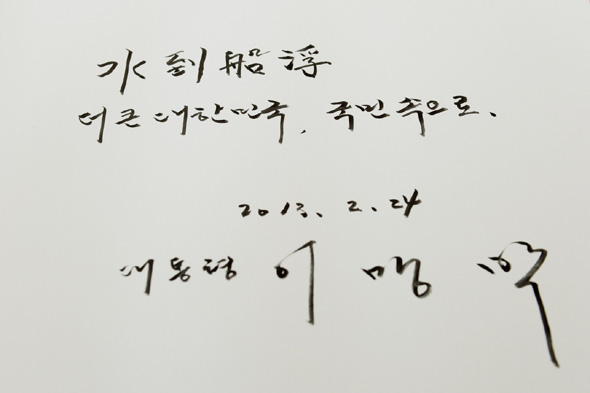 水到船浮
더 큰 대한민국, 국민 속으로.
2013. 2. 24
대통령 이 명 박